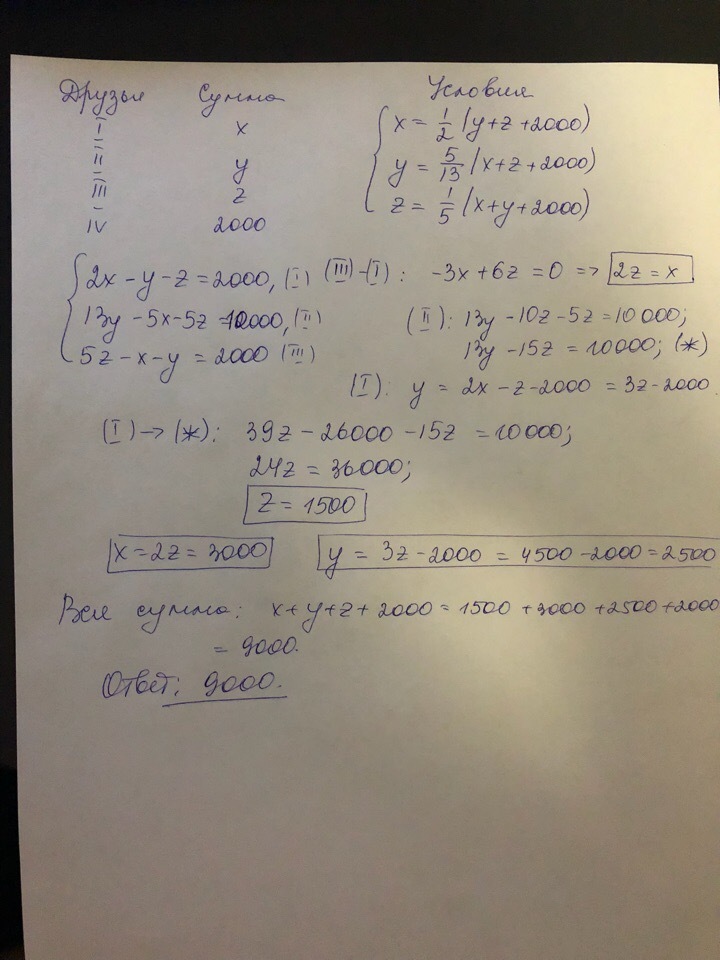 Друзья Сумма Условия
I x x = 1/2 (y+z+2000)
II y y = 5/13 (x+z+2000)
III z z = 1/5 (x+y+2000)
IV 2000
2x - y - z = 2000, (I) (III)-(I): -3x + 6z = 0 => 2z = x
13y - 5x - 5z = 10000, (II) (II): 13y - 10z - 5z = 10 000;
5z - x - y = 2000 (III) 13y - 15z = 10000; (*)
(I): y = 2x - z - 2000 = 3z - 2000.
(I) → (*): 39z - 26000 - 15z = 10000;
24z = 36000;
z = 1500
x = 2z = 3000 y = 3z - 2000 = 4500 - 2000 = 2500
Вся сумма: x + y + z + 2000 = 1500 + 3000 + 2500 + 2000
= 9000.
Ответ: 9000.